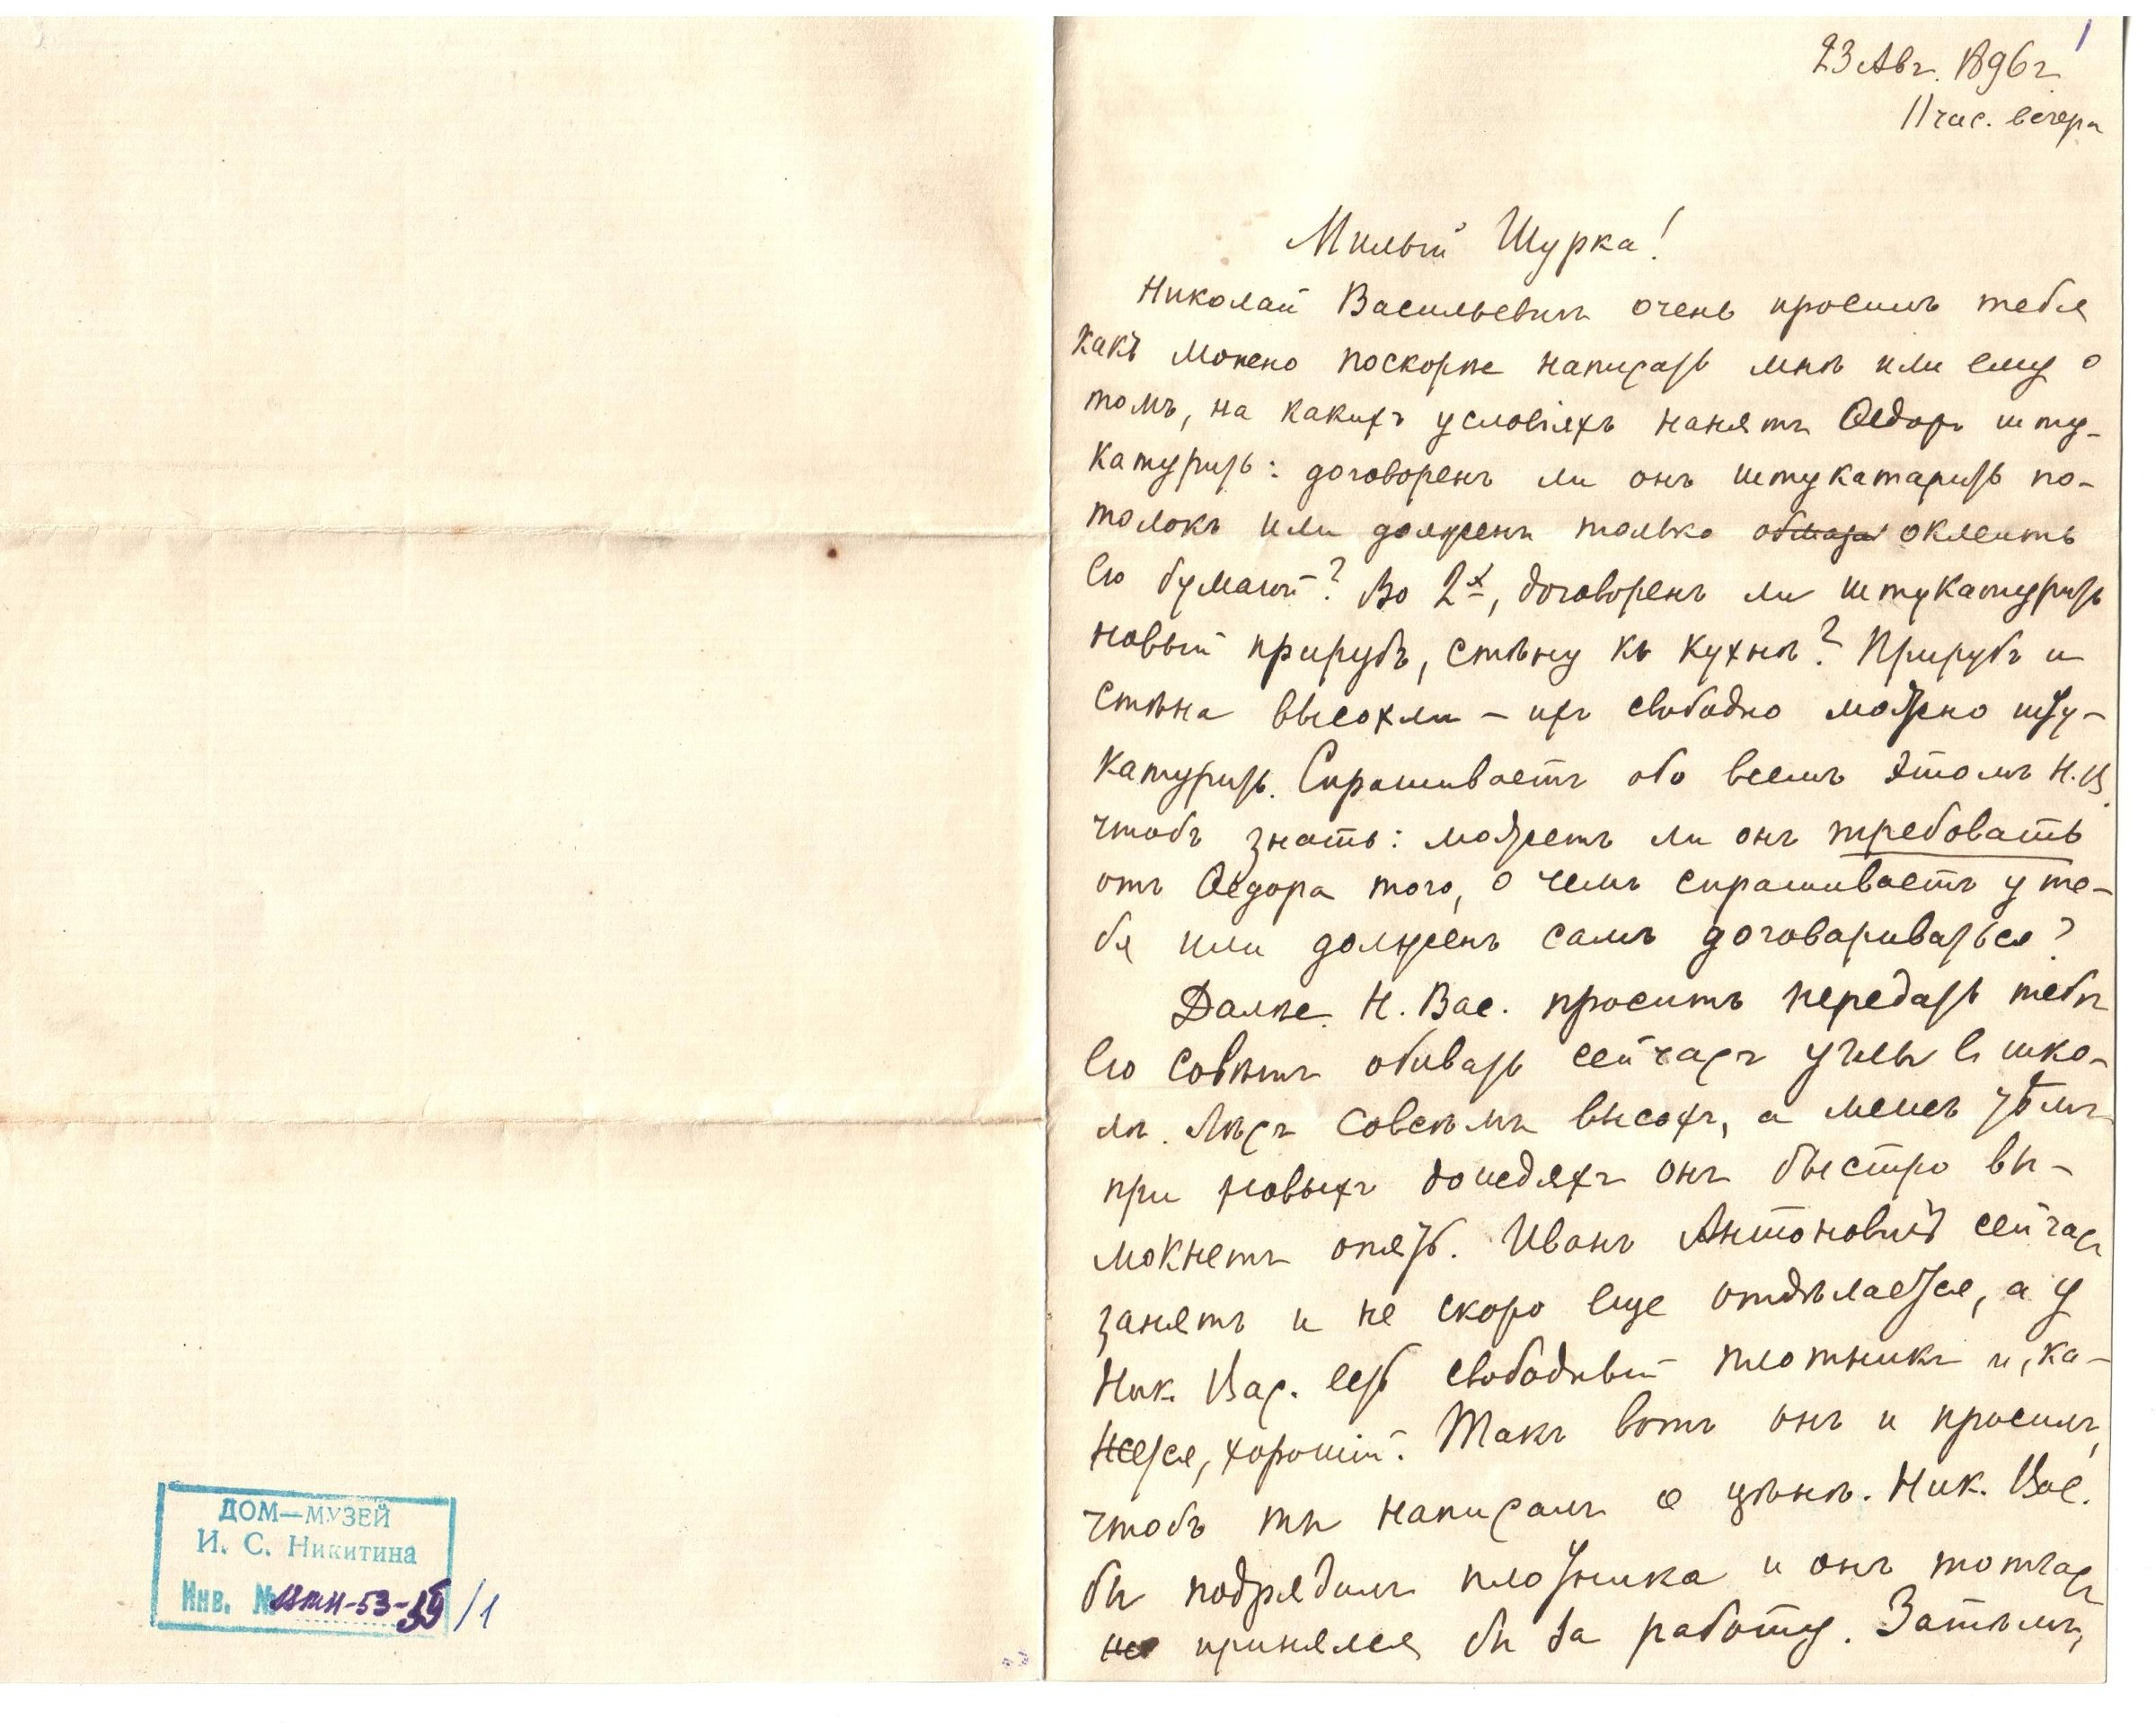 1
23 Авг. 1896 г.
11 час. вечера
Милый Шурка!
Николай Васильевичъ очень просилъ тебя
какъ можно поскорѣе написать мнѣ или ему о
томъ, на какихъ условіяхъ нанятъ Ѳедоръ шту-
катурить: договоренъ ли онъ штукатарить по-
толокъ или долженъ только оклеить
его бумагой? Во 2х, договоренъ ли штукатурить
новый прирубъ, стѣну къ кухнѣ? Прирубъ и
стѣна высохли – ихъ свободно можно шту-
катурить. Спрашиваетъ обо всемъ этомъ Н. В.
чтобъ знать: можетъ ли онъ требовать
отъ Ѳедора того, о чемъ спрашиваетъ у те-
бя или долженъ самъ договариваться?
Далѣе Н. Вас. проситъ передать тебѣ
его совѣтъ обивать сейчасъ углы въ шко-
лѣ. Лѣсъ совсѣмъ высохъ, а между тѣмъ
при новыхъ дождяхъ онъ быстро вы-
мокнетъ опять. Иванъ Антоновичъ сейчасъ
занятъ и не скоро еще отдѣлается, а у
Ник. Вас. есть свободный плотникъ и, ка-
жется, хорошій. Такъ вотъ онъ и просилъ,
чтобъ ты написалъ о цѣнѣ. Ник. Вас.
бы подрядилъ плотника и онъ тотчасъ
принялся бы за работу. Затѣмъ,
ДОМ—МУЗЕЙ
И. С. Никитина
Инв. № -53-39/1